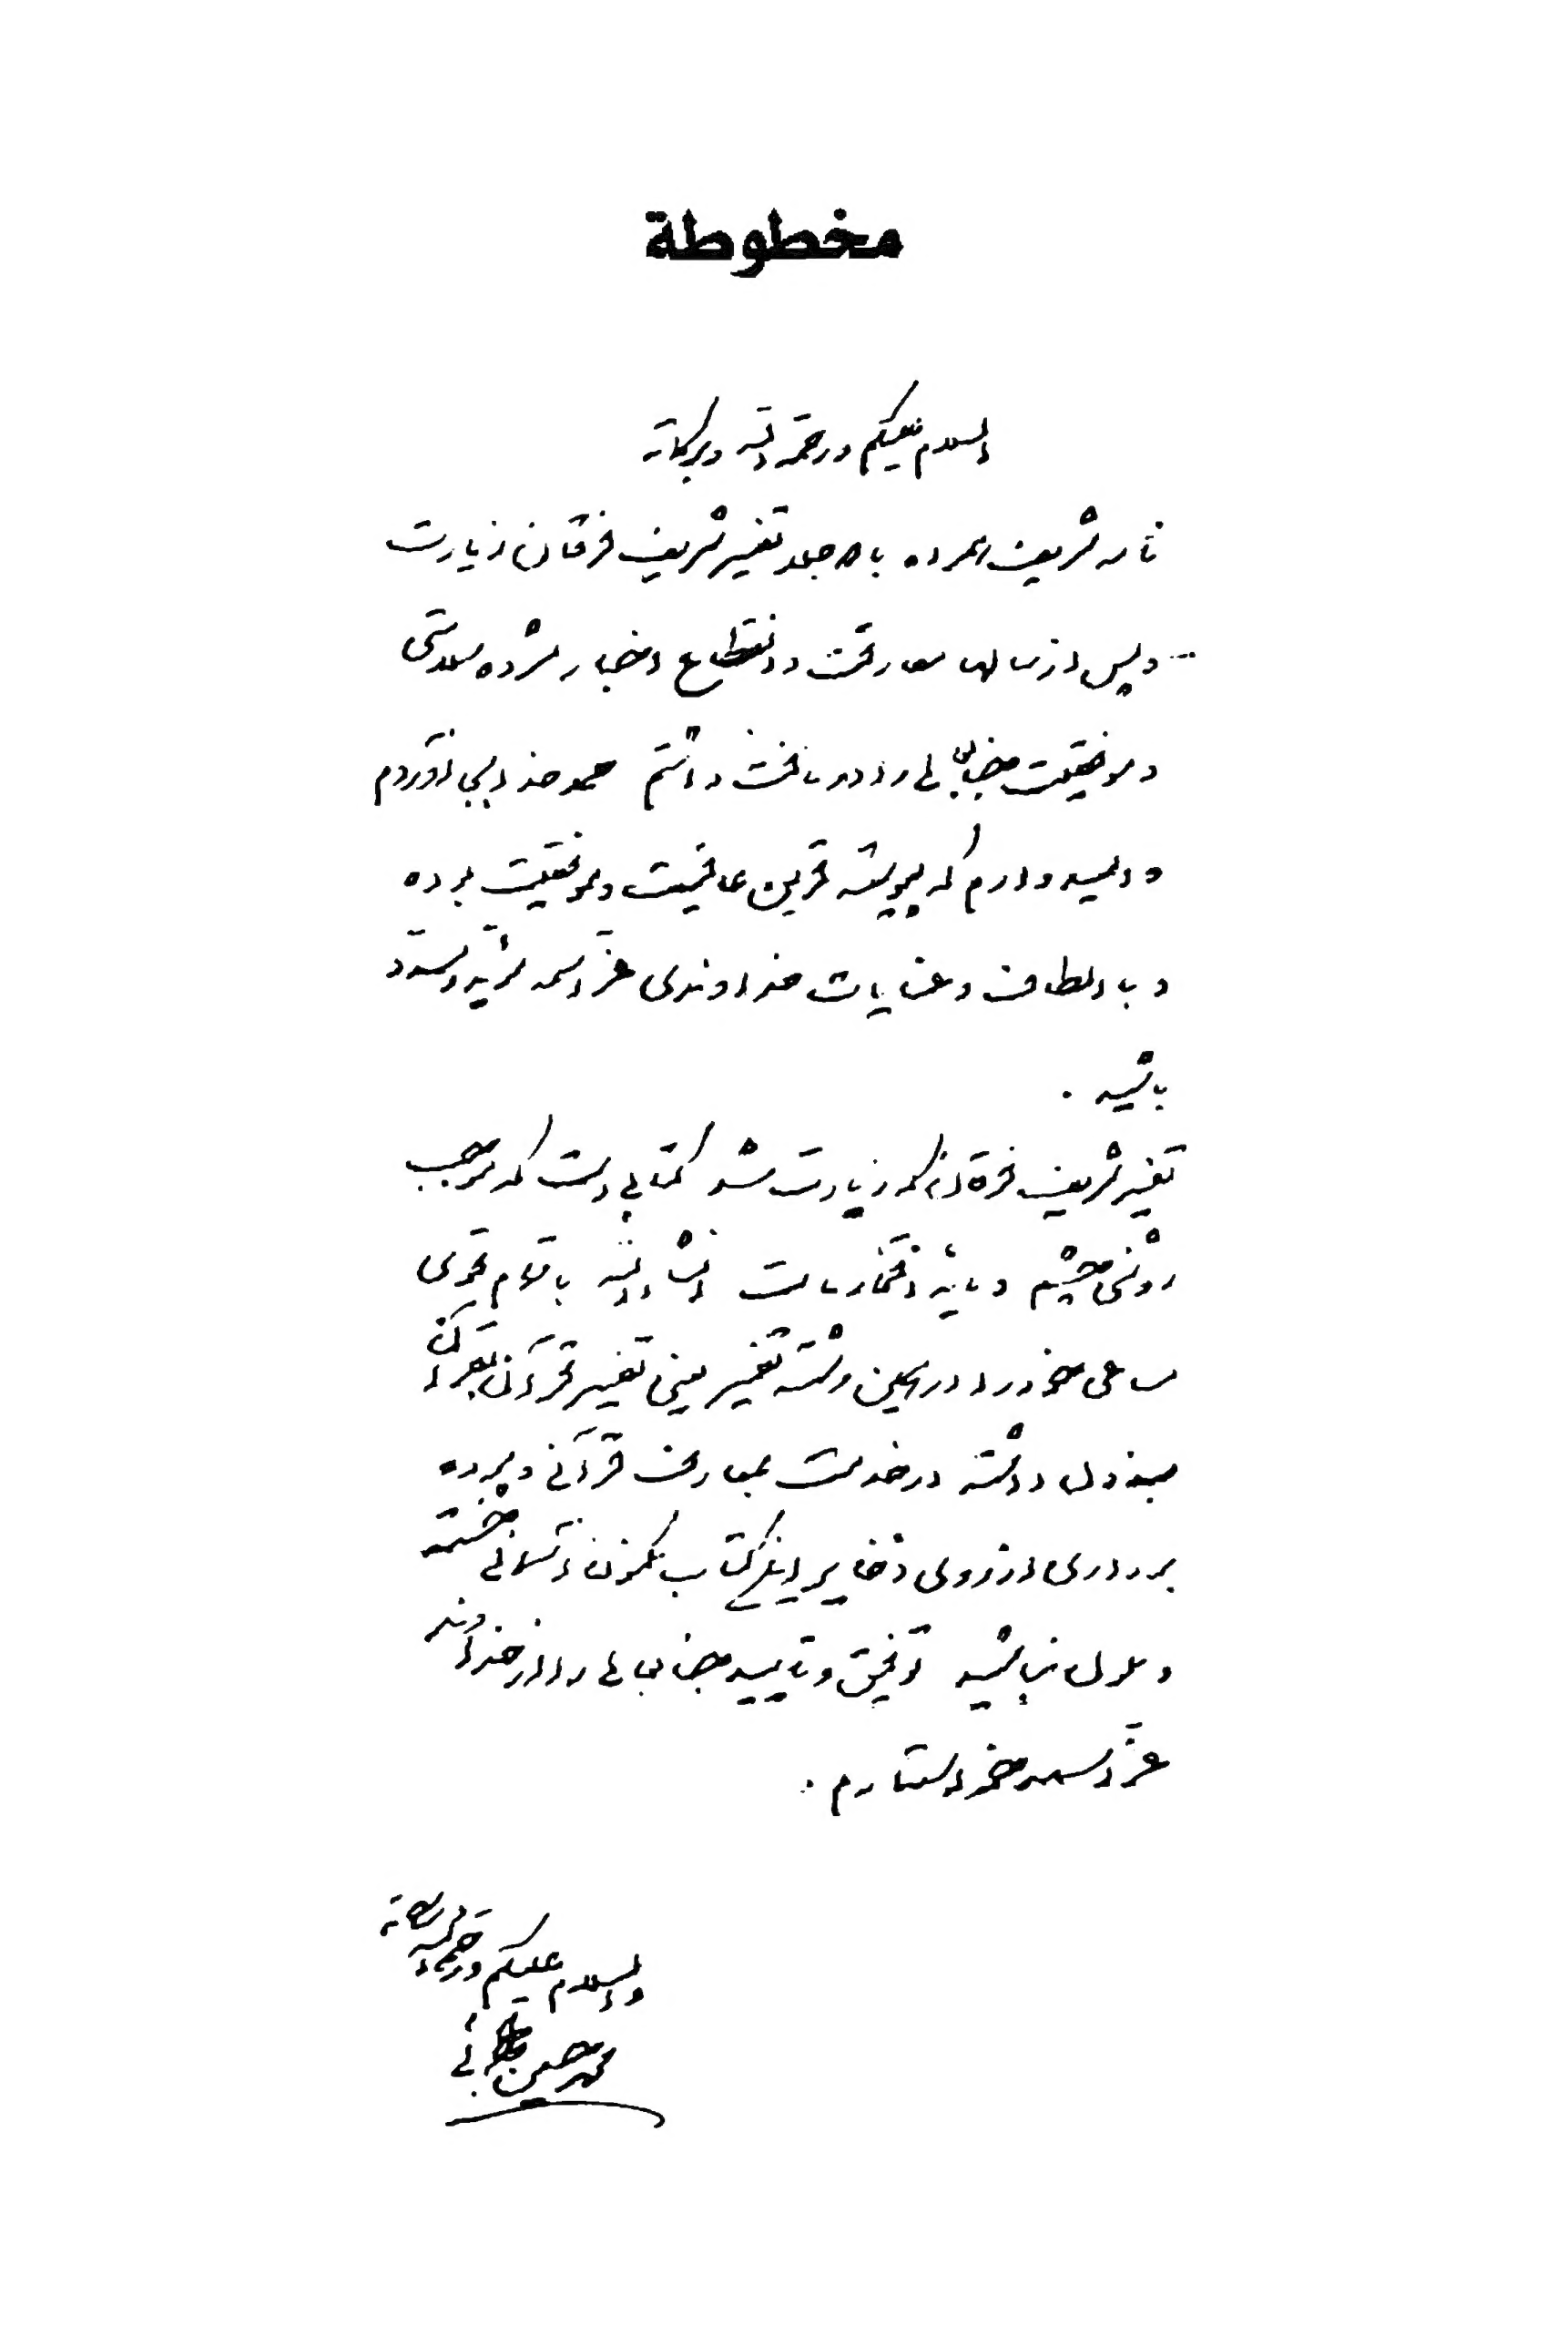 مخطوطة
السلام علیکم ورحمة الله وبرکاته
نامه شریف همراه با جلد تفسیر شریف فرقان زیارت
و پس از سالها مفارقت و انقطاع اخبار مژده سلامتی
و موفقیت جنابعالی را دریافت داشتم حمد خدا بجای آوردم
و امیدوارم که پیوسته قرین عافیت و موفقیت بوده
و با الطاف و عنایات خداوندی عز اسمه مؤید و مسدد
باشید .
تفسیر شریف فرقان که زیارت شد کتابی است که موجب
روشنی چشم و مایه افتخار ماست انشاء الله با تمام قوی
مساعی خود را در همین رشته تفسیر یعنی تفسیر قرآن بقرآن
مبذول داشته در خدمت بمعارف قرآنی و پرده
برداری از روی ذخایر این کتاب آسمانی خسته
و ملول نباشید توفیق و تأیید جنابعالی را از خداوند
عز اسمه خواستارم .
والسلام علیکم ورحمة الله وبرکاته
محمد حسین طباطبائی